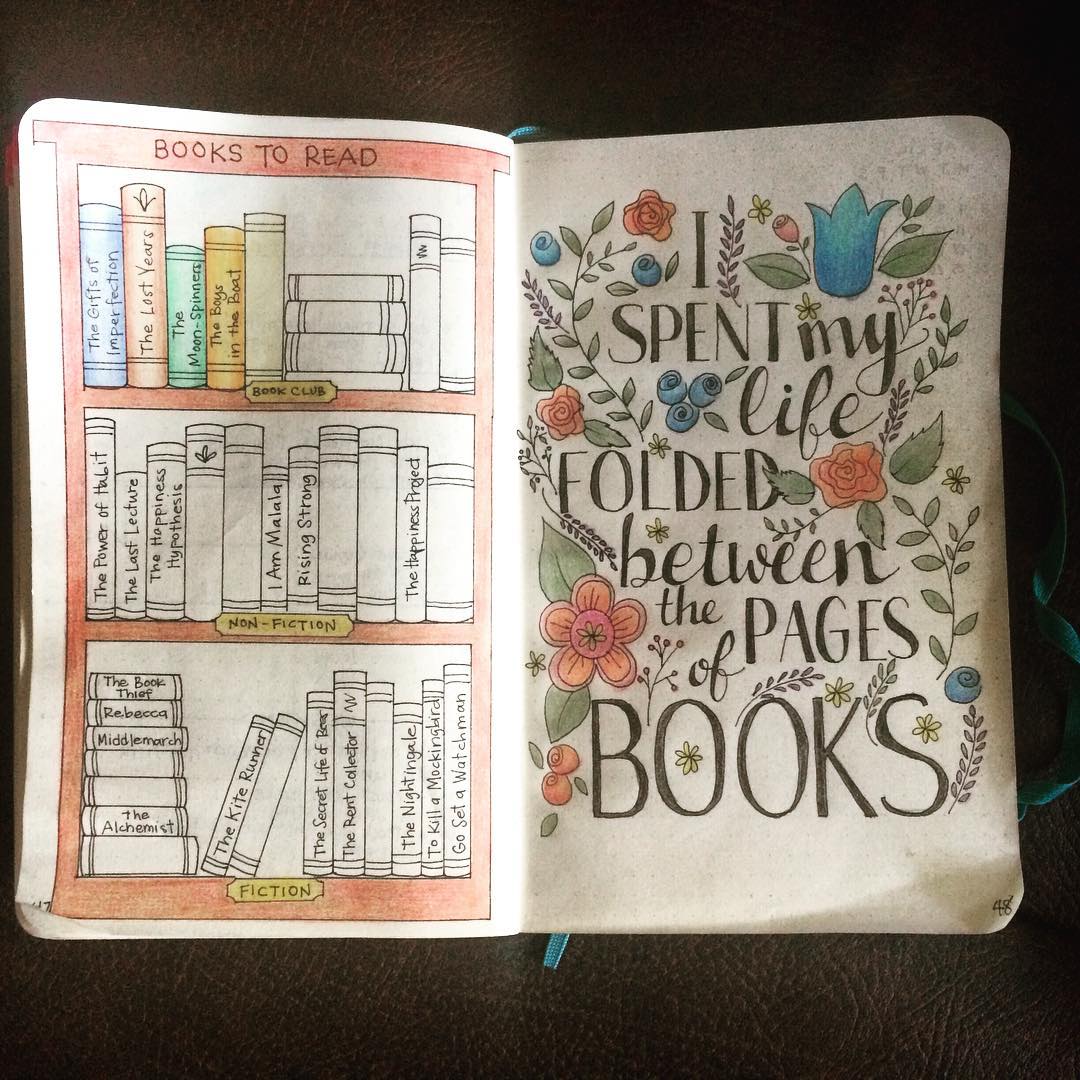 BOOKS TO READ
The Gifts of
Imperfection
The Lost Years
The
Moon-Spinners
The Boys
in the Boat
BOOK CLUB
The Power of Habit
The Last Lecture
The Happiness
Hypothesis
I Am Malala
Rising Strong
The Happiness Project
NON-FICTION
The Book
Thief
Rebecca
Middlemarch
The
Alchemist
The Kite Runner
The Secret Life of Bees
The Rent Collector
The Nightingale
To Kill a Mockingbird
Go Set a Watchman
FICTION
47
I
SPENT my
life
FOLDED
between
the PAGES
of
BOOKS
48